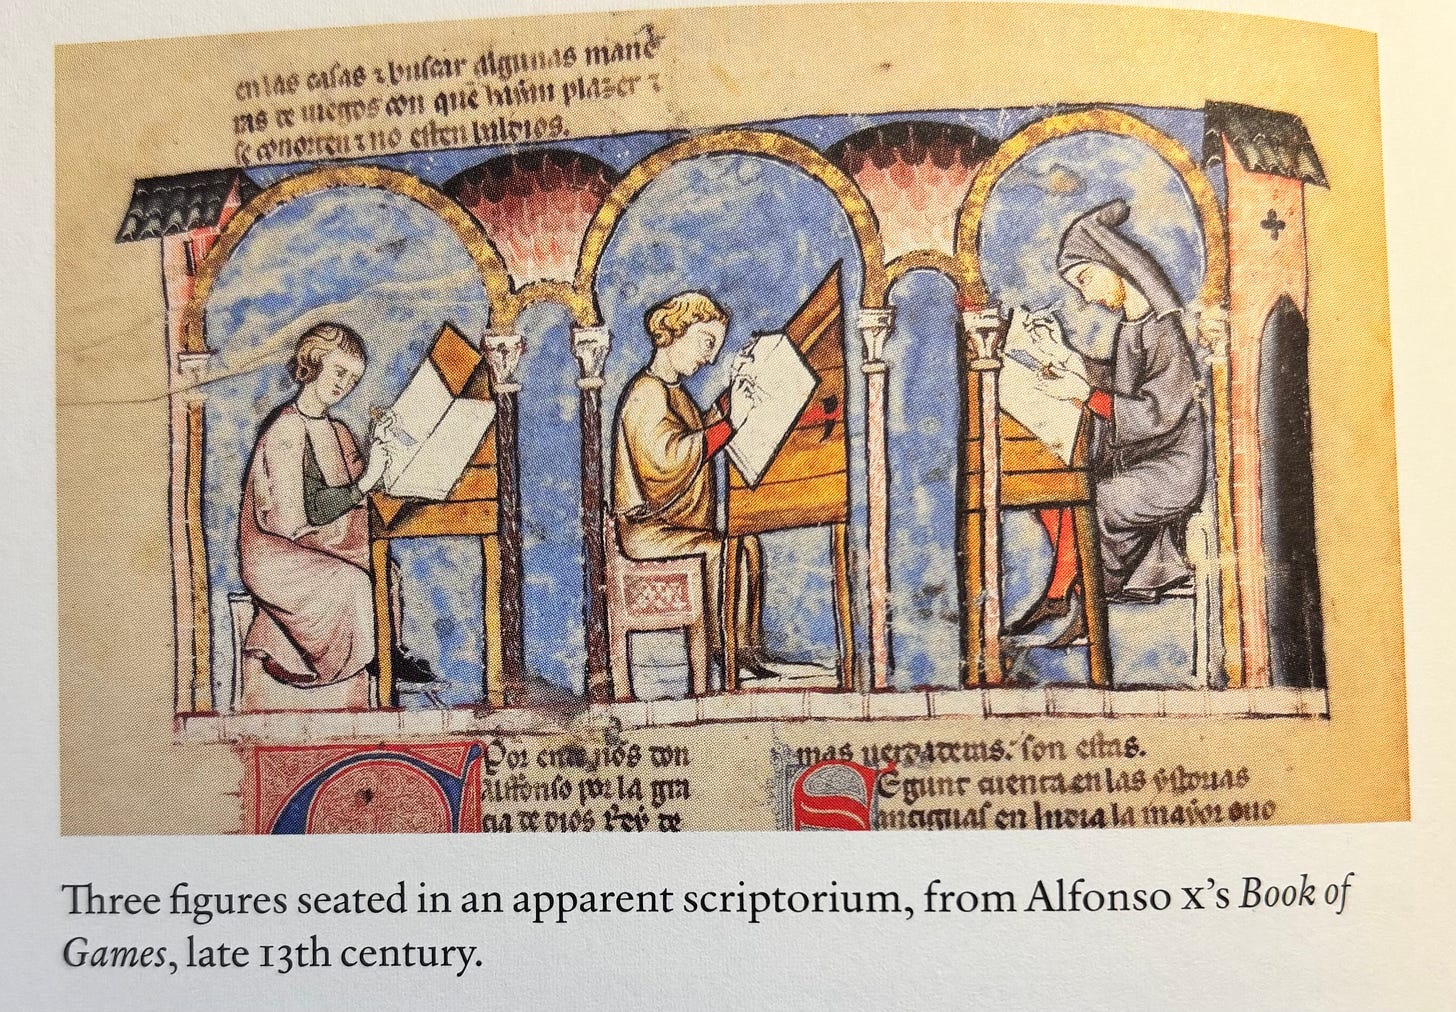 en las casas ⁊ buscar algunas mane
ras de iuegos con que plazer ⁊
se conorten ⁊ no esten baldios.
Por nos don
Alffonso por la gra
cia de dios Rey de
mas uerdaderas. son estas.
Segunt cuenta en las ystorias
antiguas en India la mayor ouo
Three figures seated in an apparent scriptorium, from Alfonso X’s Book of
Games, late 13th century.